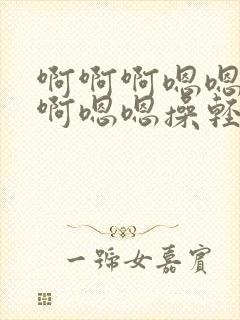 啊啊啊嗯嗯
啊嗯嗯操轻
一号女嘉宾